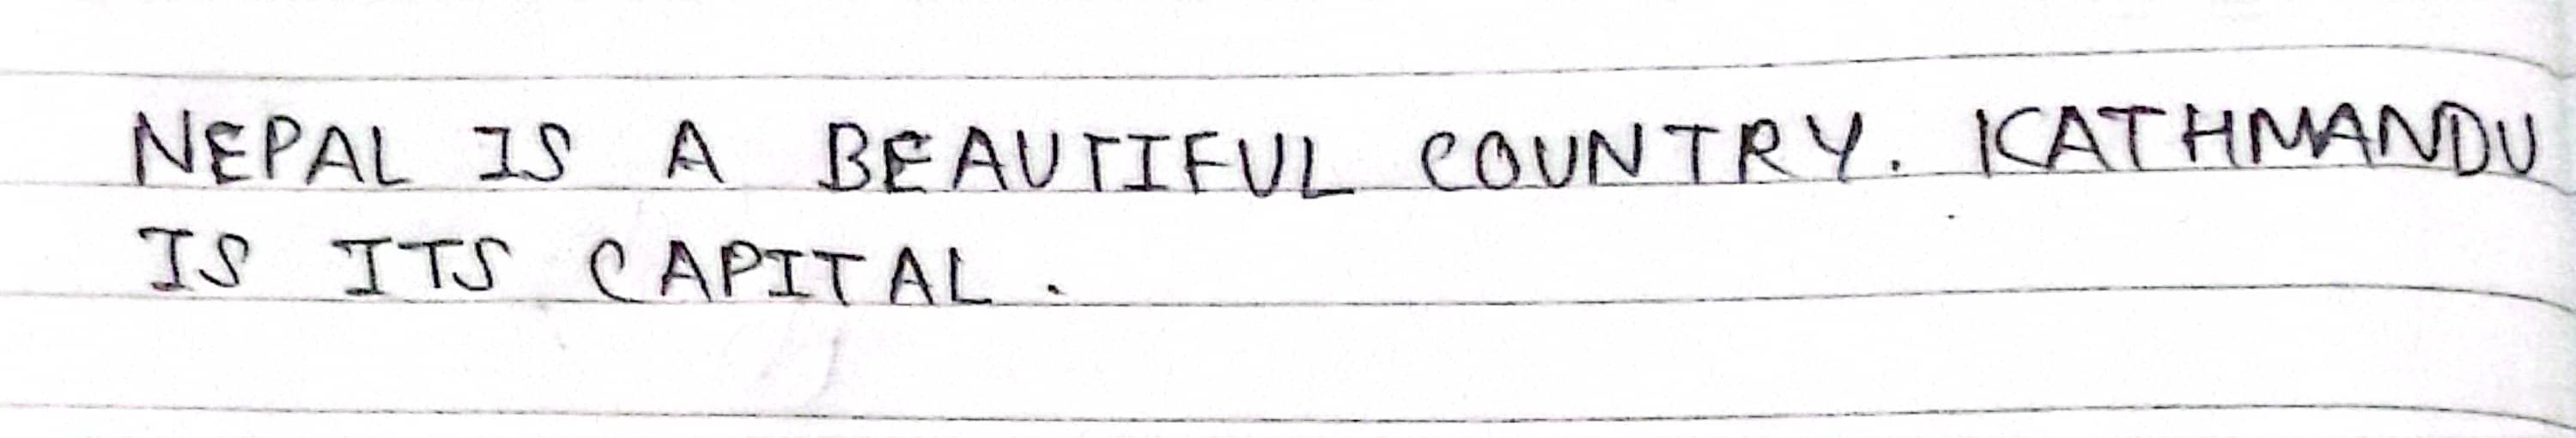 NEPAL IS A BEAUTIFUL COUNTRY. KATHMANDU
IS ITS CAPITAL.